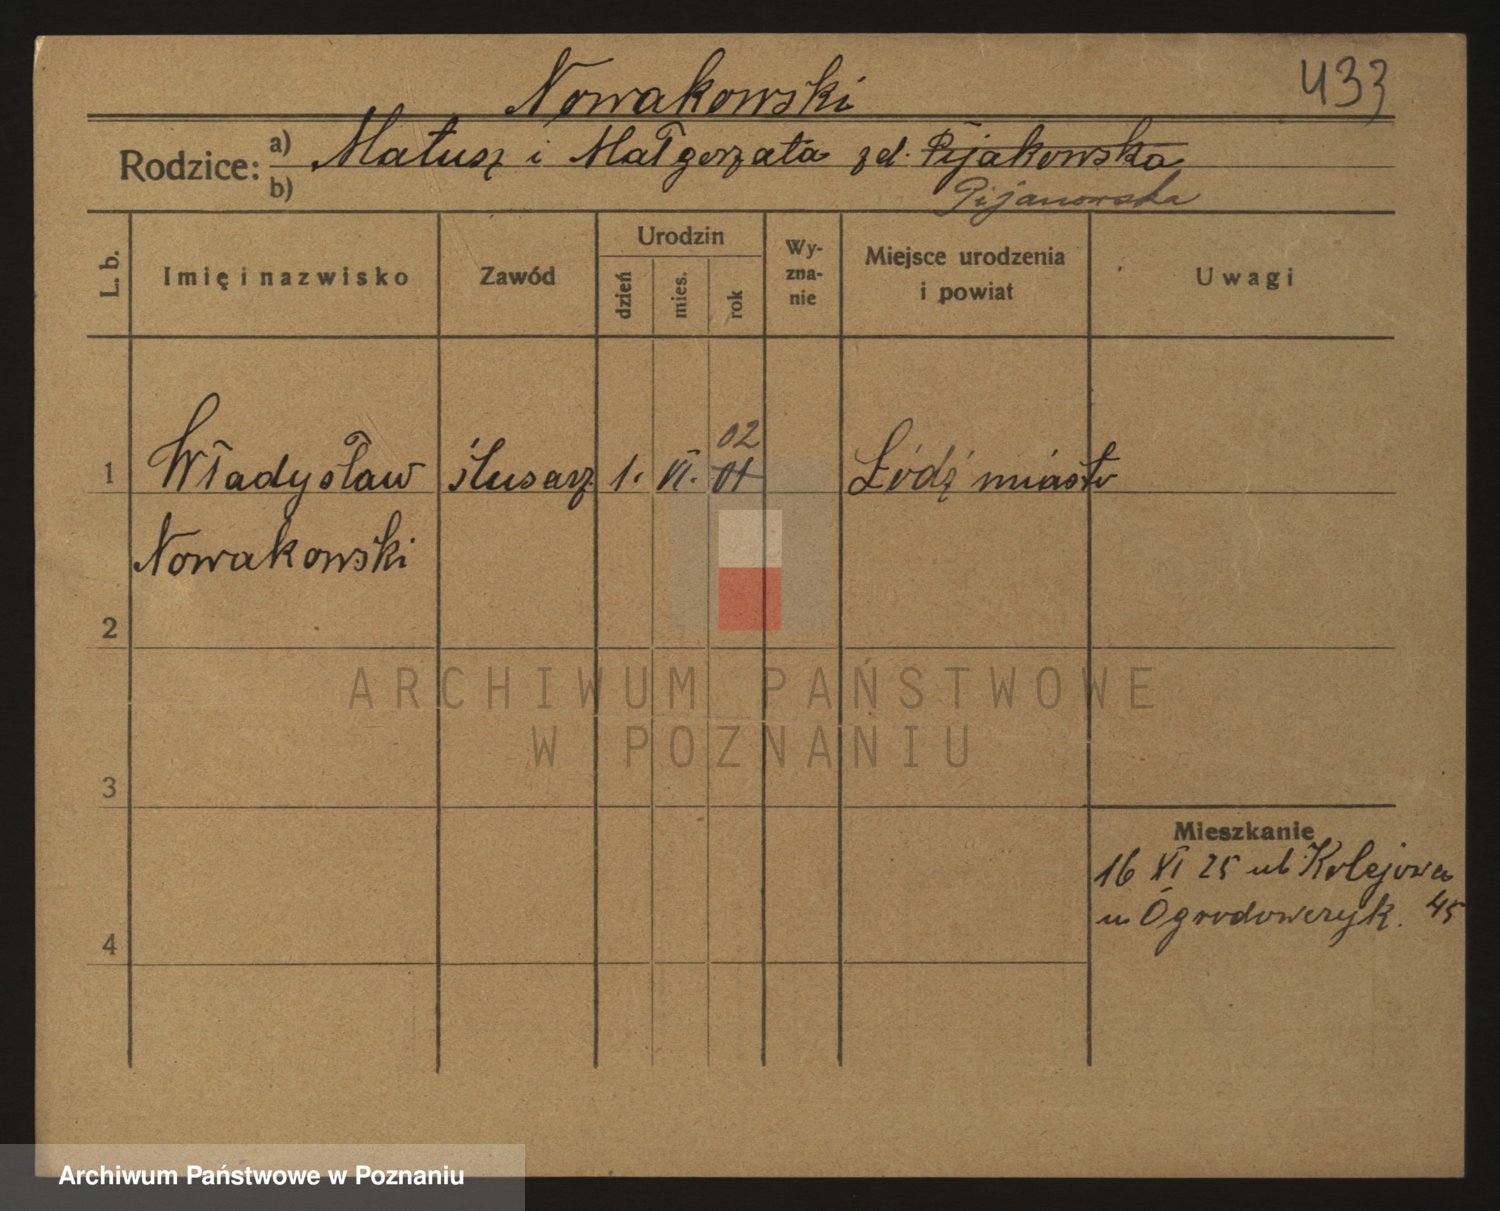 Nowakowski
433
Rodzice: a) Matusz i Małgorzata zd. Pijakowska
b) Pijanowska
L. b.
Imię i nazwisko
Zawód
Urodzin
dzień
mies.
rok
Wy-
zna-
nie
Miejsce urodzenia
i powiat
Uwagi
02
1 Władysław ślusarz 1. VI. 01 Łódź miasto
Nowakowski
2
ARCHIWUM PAŃSTWOWE
W POZNANIU
3
Mieszkanie
16 XI 25 ul. Kolejowa
45
u Ogrodowczyk.
4
Archiwum Państwowe w Poznaniu